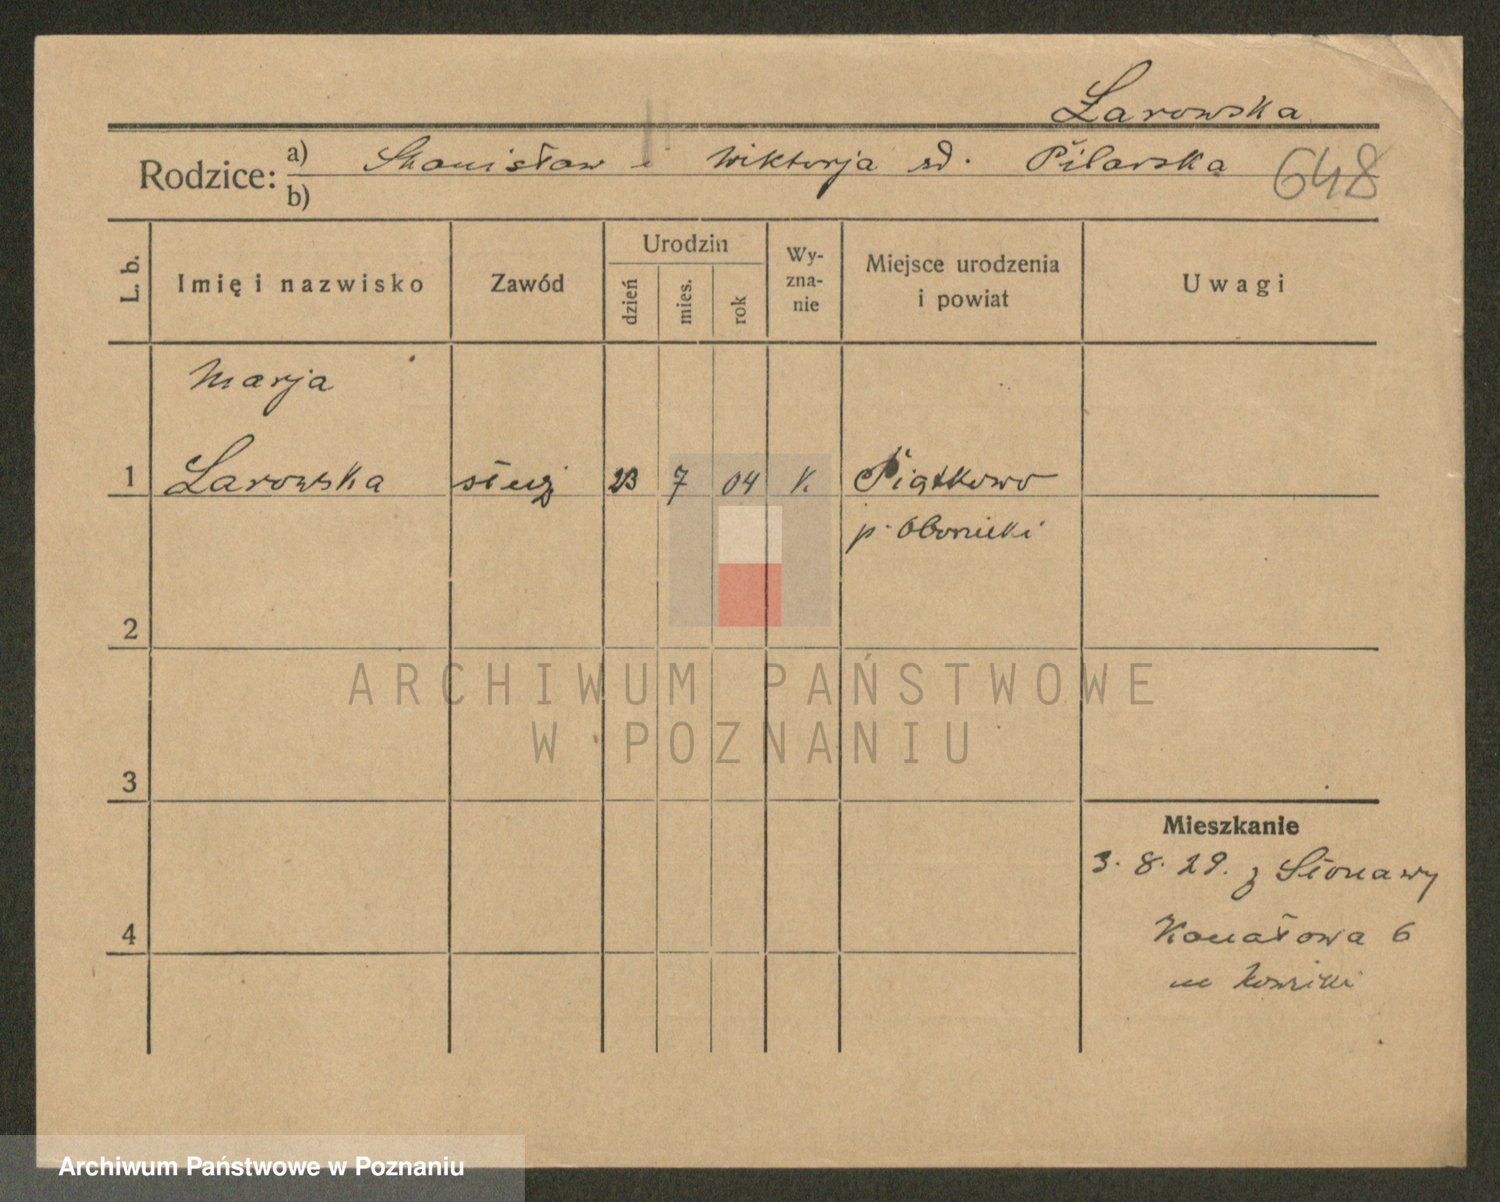 Larowska
Rodzice: a) Stanisław i Wiktorja rd. Pilarska
b)
648
L. b.
Imię i nazwisko
Zawód
Urodzin
dzień
mies.
rok
Wy-
zna-
nie
Miejsce urodzenia
i powiat
Uwagi
Marja
1 Larowska służ 23 7 04 k. Piątkowo
p. Obornicki
2
3
4
Mieszkanie
3. 8. 29. z Słonawy
Kanałowa 6
ARCHIWUM PAŃSTWOWE
W POZNANIU
Archiwum Państwowe w Poznaniu